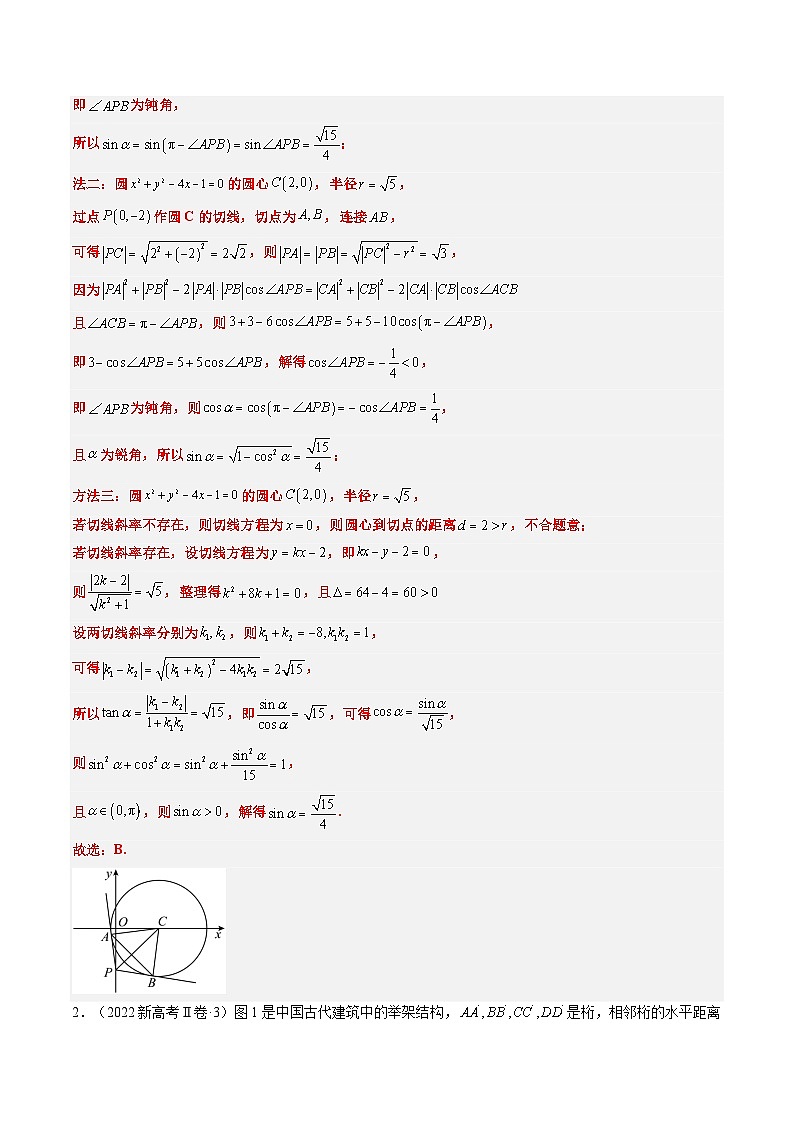 即∠APB为钝角，
所以sin α = sin(π − ∠APB) = sin∠APB = √15/4；
法二：圆x² + y² − 4x − 1 = 0的圆心C(2,0)，半径r = √5，
过点P(0,−2)作圆C的切线，切点为A,B，连接AB，
可得|PC| = √(2² + (−2)²) = 2√2，则|PA| = |PB| = √(|PC|² − r²) = √3，
因为|PA|² + |PB|² − 2|PA|·|PB|cos∠APB = |CA|² + |CB|² − 2|CA|·|CB|cos∠ACB
且∠ACB = π − ∠APB，则3 + 3 − 6cos∠APB = 5 + 5 − 10cos(π − ∠APB)，
即3 − cos∠APB = 5 + 5cos∠APB，解得cos∠APB = −1/4 < 0，
即∠APB为钝角，则cos α = cos(π − ∠APB) = − cos∠APB = 1/4，
且α为锐角，所以sin α = √(1 − cos² α) = √15/4；
方法三：圆x² + y² − 4x − 1 = 0的圆心C(2,0)，半径r = √5，
若切线斜率不存在，则切线方程为x = 0，则圆心到切点的距离d = 2 > r，不合题意；
若切线斜率存在，设切线方程为y = kx − 2，即kx − y − 2 = 0，
则|2k − 2|/√(k² + 1) = √5，整理得k² + 8k + 1 = 0，且Δ = 64 − 4 = 60 > 0
设两切线斜率分别为k₁, k₂，则k₁ + k₂ = −8, k₁k₂ = 1，
可得|k₁ − k₂| = √((k₁ + k₂)² − 4k₁k₂) = 2√15，
所以tan α = |k₁ − k₂|/(1 + k₁k₂) = √15，即sin α/cos α = √15，可得cos α = sin α/√15，
则sin² α + cos² α = sin² α + sin² α/15 = 1，
且α ∈ (0, π)，则sin α > 0，解得sin α = √15/4．
故选：B.
y
O
C
A
x
P
B
2．（2022新高考Ⅱ卷·3）图1是中国古代建筑中的举架结构，AA′, BB′, CC′, DD′是桁，相邻桁的水平距离